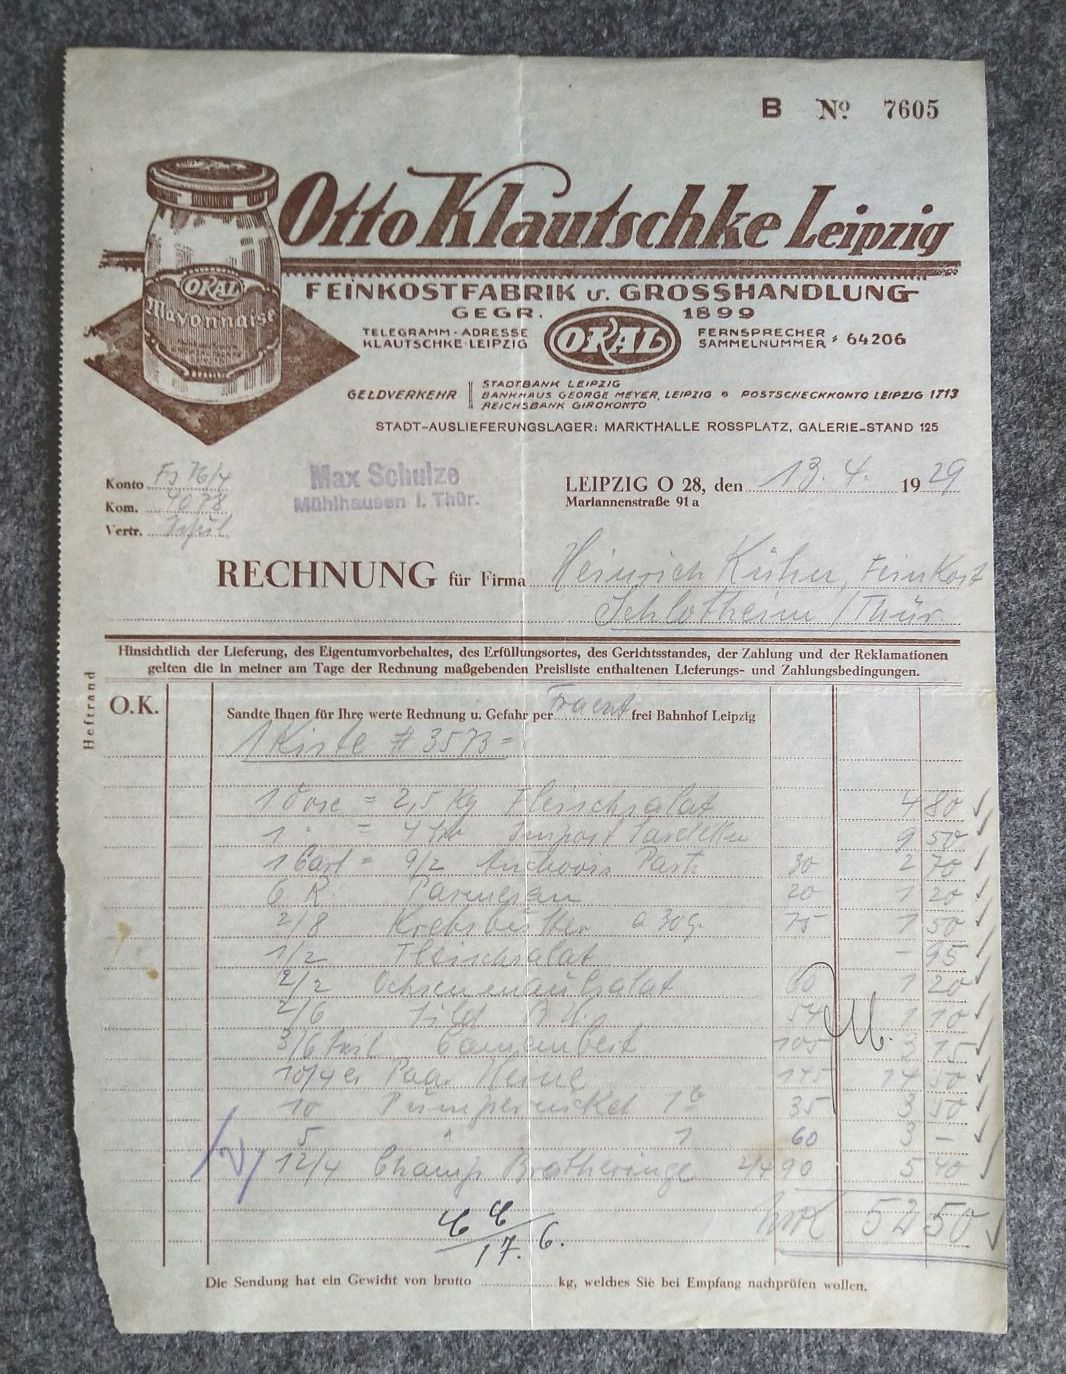 B No 7605
Otto Klautschke Leipzig
FEINKOSTFABRIK u. GROSSHANDLUNG
GEGR. 1899
TELEGRAMM-ADRESSE
KLAUTSCHKE-LEIPZIG
OKAL
FERNSPRECHER
SAMMELNUMMER: 64206
OKAL
Mayonnaise
GELDVERKEHR
STADTBANK LEIPZIG
BANKHAUS GEORGE MEYER, LEIPZIG * POSTSCHECKKONTO LEIPZIG 1713
REICHSBANK GIROKONTO
STADT-AUSLIEFERUNGSLAGER: MARKTHALLE ROSSPLATZ, GALERIE-STAND 125
Konto 76/4
Kom. 4078
Vertr.
Max Schulze
Mühlhausen i. Thür.
LEIPZIG O 28, den 13.4. 1929
Mariannenstraße 91a
RECHNUNG für Firma Heinrich Kühn, Feinkost
Schlotheim / Thür
Hinsichtlich der Lieferung, des Eigentumvorbehaltes, des Erfüllungsortes, des Gerichtsstandes, der Zahlung und der Reklamationen
gelten die in meiner am Tage der Rechnung maßgebenden Preisliste enthaltenen Lieferungs- und Zahlungsbedingungen.
Heftrand
O.K.
Sandte Ihnen für Ihre werte Rechnung u. Gefahr per Fracht frei Bahnhof Leipzig
1 Kiste # 3573 =
1 Dose = 2,5 Kg Fleischsalat 4 80
1 " = 9 50
1 = 9/2 Anchovis Paste 30 2 70
6 R. Parmesan 20 1 20
2/8 Krebsbutter a 30 g. 75 1 50
1/2 Fleischsalat - 95
2/2 Ochsenmaulsalat 60 1 20
2/6 1 10
3/6 Camembert 105 3 15
10/4 Paar 145 14 50
10 Pumpernickel 1a 35 3 50
5 " 1 60 3 -
12/4 Champ. Bratheringe 5 40
52 50
17. 6.
Die Sendung hat ein Gewicht von brutto kg, welches Sie bei Empfang nachprüfen wollen.